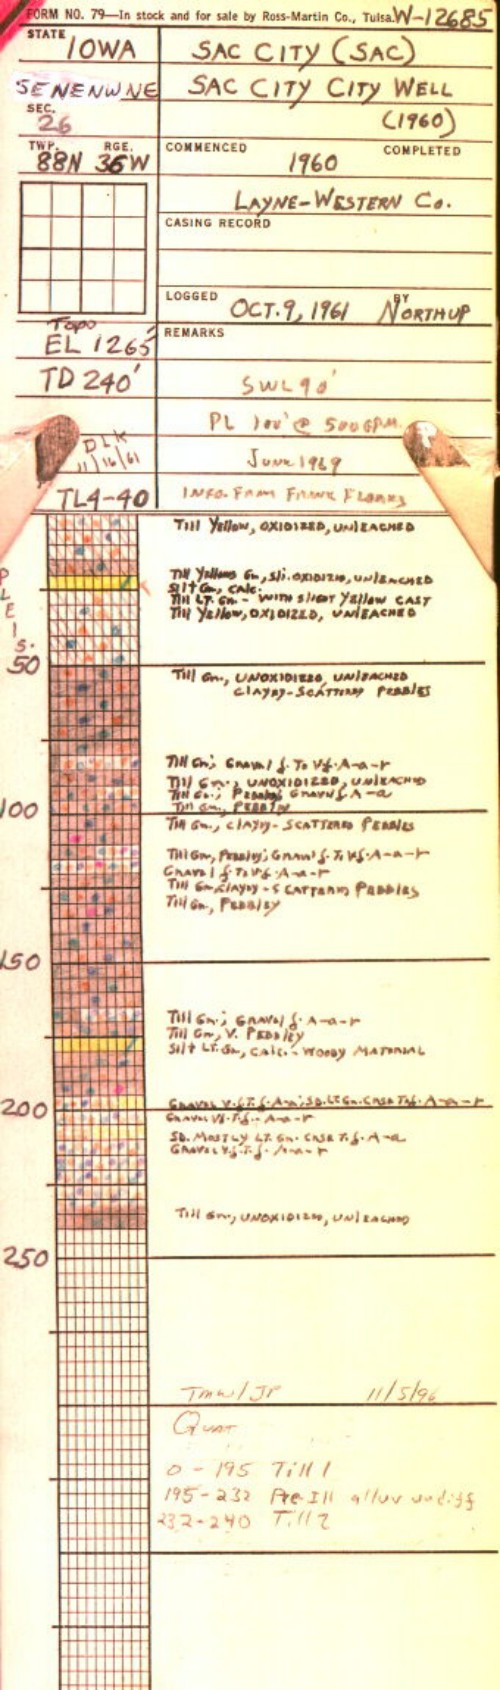 FORM NO. 79—In stock and for sale by Ross-Martin Co., Tulsa. W-12685
STATE IOWA
SAC CITY (SAC)
SENENWNE
SAC CITY CITY WELL
SEC. 26
(1960)
TWP. 88N RGE. 36W
COMMENCED 1960 COMPLETED
LAYNE-WESTERN Co.
CASING RECORD
LOGGED OCT. 9, 1961 BY NORTHUP
Topo
EL 1265'
REMARKS
TD 240'
SWL 90'
PL 100' @ 500 GPM
DLK
11/16/61
June 1969
TL4-40
INFO. FROM FRANK
Till Yellow, OXIDIZED, UNLEACHED
Till Yellow Gn, sli. OXIDIZED, UNLEACHED
Silt Gn, CALC.
Till LT. Gn. - WITH SLIGHT YELLOW CAST
Till Yellow, OXIDIZED, UNLEACHED
PLEIS.
50
Till Gn., UNOXIDIZED, UNLEACHED
CLAYEY-SCATTERED PEBBLES
Till Gn; GRAVEL f. To Vf. A-a-r
Till Gn., UNOXIDIZED, UNLEACHED
Till Gn.; PEBBLY GRAVEL f A-a
Till Gn., PEBBLY
100
Till Gn., CLAYEY-SCATTERED PEBBLES
Till Gn, PEBBLY; GRAVEL f. To Vf. A-a-r
GRAVEL f. To Vf. A-a-r
Till Gn, CLAYEY-SCATTERED PEBBLES
Till Gn., PEBBLY
150
Till Gn.; GRAVEL f. A-a-r
Till Gn, V. PEBBLY
Silt LT. Gn, CALC. - WOODY MATERIAL
200
GRAVEL V.f. T. f. A-a; SD. LT. Gn. CRSE T. f. A-a-r
GRAVEL Vf. T. f. A-a-r
SD. MOSTLY LT. Gn. CRSE T. f. A-a
GRAVEL V.f. T. f. A-a-r
Till Gn, UNOXIDIZED, UNLEACHED
250
TMW/JP 11/5/96
QUAT
0 - 195 Till 1
195-232 Pre-Ill alluv undiff
232-240 Till 2